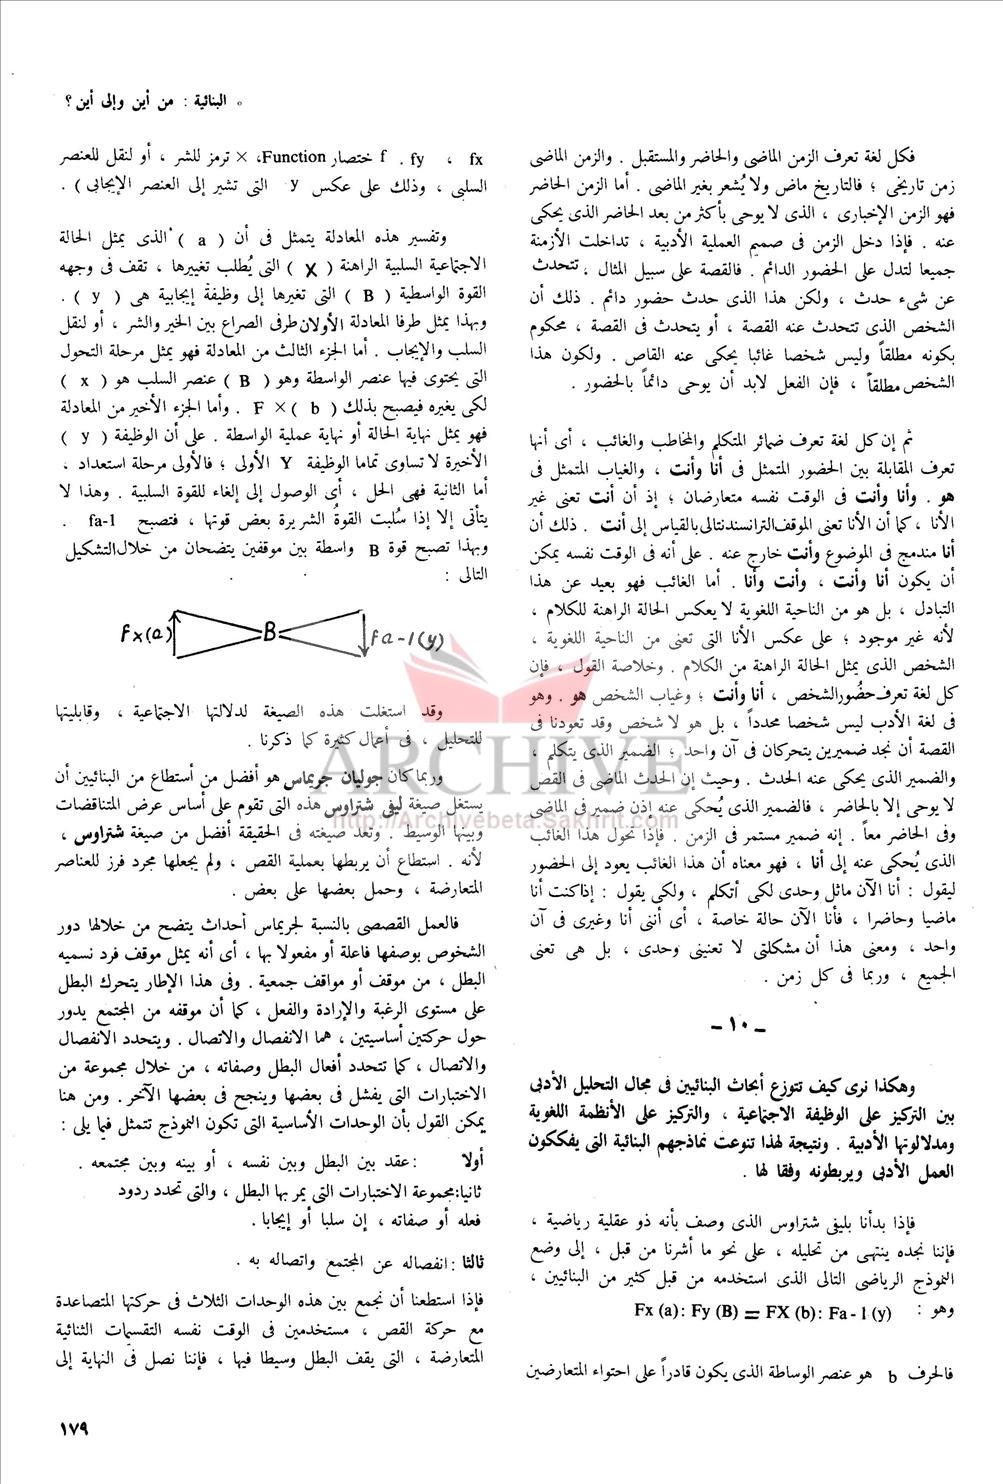 ° البنائية : من أين وإلى أين ؟
فكل لغة تعرف الزمن الماضى والحاضر والمستقبل . والزمن الماضى
زمن تاريخى ؛ فالتاريخ ماض ولا يُشعر بغير الماضى . أما الزمن الحاضر
فهو الزمن الإخبارى ، الذى لا يوحى بأكثر من بعد الحاضر الذى يحكى
عنه . فإذا دخل الزمن فى صميم العملية الأدبية ، تداخلت الأزمنة
جميعا لتدل على الحضور الدائم . فالقصة على سبيل المثال ، تتحدث
عن شىء حدث ، ولكن هذا الذى حدث حضور دائم . ذلك أن
الشخص الذى تتحدث عنه القصة ، أو يتحدث فى القصة ، محكوم
بكونه مطلقاً وليس شخصا غائبا يحكى عنه القاص . ولكون هذا
الشخص مطلقاً ، فإن الفعل لابد أن يوحى دائماً بالحضور .
ثم إن كل لغة تعرف ضمائر المتكلم والمخاطب والغائب ، أى أنها
تعرف المقابلة بين الحضور المتمثل فى أنا وأنت ، والغياب المتمثل فى
هو . وأنا وأنت فى الوقت نفسه متعارضان ؛ إذ أن أنت تعنى غير
الأنا ، كما أن الأنا تعنى الموقف الترانسندنتالى بالقياس إلى أنت . ذلك أن
أنا مندمج فى الموضوع وأنت خارج عنه . على أنه فى الوقت نفسه يمكن
أن يكون أنا وأنت ، وأنت وأنا . أما الغائب فهو بعيد عن هذا
التبادل ، بل هو من الناحية اللغوية لا يعكس الحالة الراهنة للكلام ،
لأنه غير موجود ؛ على عكس الأنا التى تعنى من الناحية اللغوية ،
الشخص الذى يمثل الحالة الراهنة من الكلام . وخلاصة القول ، فإن
كل لغة تعرف حضُور الشخص ، أنا وأنت ؛ وغياب الشخص هو . وهو
فى لغة الأدب ليس شخصا محدداً ، بل هو لا شخص وقد تعودنا فى
القصة أن نجد ضميرين يتحركان فى آن واحد ؛ الضمير الذى يتكلم ،
والضمير الذى يحكى عنه الحدث . وحيث إن الحدث الماضى فى القص
لا يوحى إلا بالحاضر ، فالضمير الذى يُحكى عنه إذن ضمير فى الماضى
وفى الحاضر معاً . إنه ضمير مستمر فى الزمن . فإذا تحول هذا الغائب
الذى يُحكى عنه إلى أنا ، فهو معناه أن هذا الغائب يعود إلى الحضور
ليقول : أنا الآن ماثل وحدى لكى أتكلم ، ولكى يقول : إذا كنت أنا
ماضيا وحاضرا ، فأنا الآن حالة خاصة ، أى أننى أنا وغيرى فى آن
واحد ، ومعنى هذا أن مشكلتى لا تعنينى وحدى ، بل هى تعنى
الجميع ، وربما فى كل زمن .
ـ ١٠ ـ
وهكذا نرى كيف تتوزع أبحاث البنائيين فى مجال التحليل الأدبى
بين التركيز على الوظيفة الاجتماعية ، والتركيز على الأنظمة اللغوية
ومدلالوتها الأدبية . ونتيجة لهذا تنوعت نماذجهم البنائية التى يفككون
العمل الأدبى ويربطونه وفقا لها .
فإذا بدأنا بليفى شتراوس الذى وصف بأنه ذو عقلية رياضية ،
فإننا نجده ينتهى من تحليله ، على نحو ما أشرنا من قبل ، إلى وضع
النموذج الرياضى التالى الذى استخدمه من قبل كثير من البنائيين ،
وهو : Fx (a): Fy (B) = FX (b): Fa - 1 (y)
فالحرف b هو عنصر الوساطة الذى يكون قادراً على احتواء المتعارضين
fx ، fy . f ختصار Function، × ترمز للشر ، أو لنقل للعنصر
السلبى ، وذلك على عكس y التى تشير إلى العنصر الإيجابى ) .
وتفسير هذه المعادلة يتمثل فى أن ( a ) الذى يمثل الحالة
الاجتماعية السلبية الراهنة ( X ) التى يُطلب تغييرها ، تقف فى وجهه
القوة الواسطية ( B ) التى تغيرها إلى وظيفة إيجابية هى ( y ) .
وبهذا يمثل طرفا المعادلة الأولان طرفى الصراع بين الخير والشر ، أو لنقل
السلب والإيجاب . أما الجزء الثالث من المعادلة فهو يمثل مرحلة التحول
التى يحتوى فيها عنصر الواسطة وهو ( B ) عنصر السلب هو ( x )
لكى يغيره فيصبح بذلك F × ( b ) . وأما الجزء الأخير من المعادلة
فهو يمثل نهاية الحالة أو نهاية عملية الواسطة . على أن الوظيفة ( y )
الأخيرة لا تساوى تماما الوظيفة Y الأولى ؛ فالأولى مرحلة استعداد ،
أما الثانية فهى الحل ، أى الوصول إلى إلغاء للقوة السلبية . وهذا لا
يتأتى إلا إذا سُلبت القوةُ الشريرة بعض قوتها ، فتصبح fa-1 .
وبهذا تصبح قوة B واسطة بين موقفين يتضحان من خلال التشكيل
التالى :
Fx(a) B Fa-1(y)
وقد استغلت هذه الصيغة لدلالتها الاجتماعية ، وقابليتها
للتحليل ، فى أعمال كثيرة كما ذكرنا .
وربما كان جوليان جريماس هو أفضل من أستطاع من البنائيين أن
يستغل صيغة ليفى شتراوس هذه التى تقوم على أساس عرض المتناقضات
وبينها الوسيط . وتعد صيغته فى الحقيقة أفضل من صيغة شتراوس ،
لأنه . استطاع أن يربطها بعملية القص ، ولم يجعلها مجرد فرز للعناصر
المتعارضة ، وحمل بعضها على بعض .
فالعمل القصصى بالنسبة لجريماس أحداث يتضح من خلالها دور
الشخوص بوصفها فاعلة أو مفعولا بها ، أى أنه يمثل موقف فرد نسميه
البطل ، من موقف أو مواقف جمعية . وفى هذا الإطار يتحرك البطل
على مستوى الرغبة والإرادة والفعل ، كما أن موقفه من المجتمع يدور
حول حركتين أساسيتين ، هما الانفصال والاتصال . ويتحدد الانفصال
والاتصال ، كما تتحدد أفعال البطل وصفاته ، من خلال مجموعة من
الاختبارات التى يفشل فى بعضها وينجح فى بعضها الآخر . ومن هنا
يمكن القول بأن الوحدات الأساسية التى تكون النموذج تتمثل فيما يلى :
أولا : عقد بين البطل وبين نفسه ، أو بينه وبين مجتمعه .
ثانيا: مجموعة الاختبارات التى يمر بها البطل ، والتى تحدد ردود
فعله أو صفاته ، إن سلبا أو إيجابا .
ثالثا : انفصاله عن المجتمع واتصاله به .
فإذا استطعنا أن نجمع بين هذه الوحدات الثلاث فى حركتها المتصاعدة
مع حركة القص ، مستخدمين فى الوقت نفسه التقسيمات الثنائية
المتعارضة ، التى يقف البطل وسيطا فيها ، فإننا نصل فى النهاية إلى
١٧٩
ARCHIVE
http://Archivebeta.Sakhrit.com